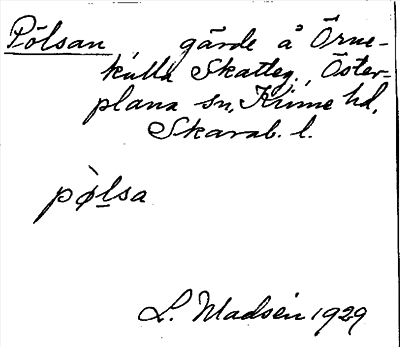 Pölsan, gärde å Örne-
kulla Skatteg., Öster-
plana sn, Kinne hd,
Skarab. l.
pø̀lsa
L. Madsén 1929